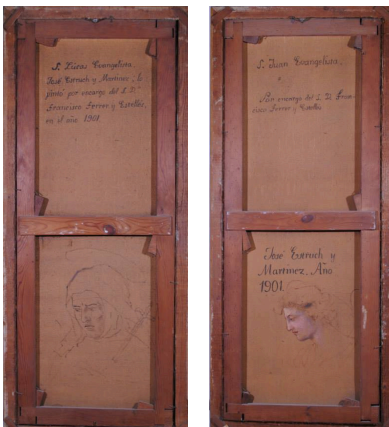 S. Lucas Evangelista.
José Estruch y Martinez, lo
pintó por encargo del L. D.
Francisco Ferrer y Estellés,
en el año 1901.
S. Juan Evangelista,
Por encargo del L. D. Fran-
cisco Ferrer y Estellés
José Estruch y
Martinez. Año
1901.